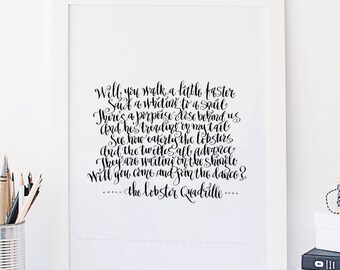 Will you walk a little faster
Said a whiting to a snail
There's a porpoise close behind us
And he's treading on my tail
See how eagerly the lobsters
And the turtles all advance
They are waiting on the shingle
Will you come and join the dance?
the Lobster Quadrille